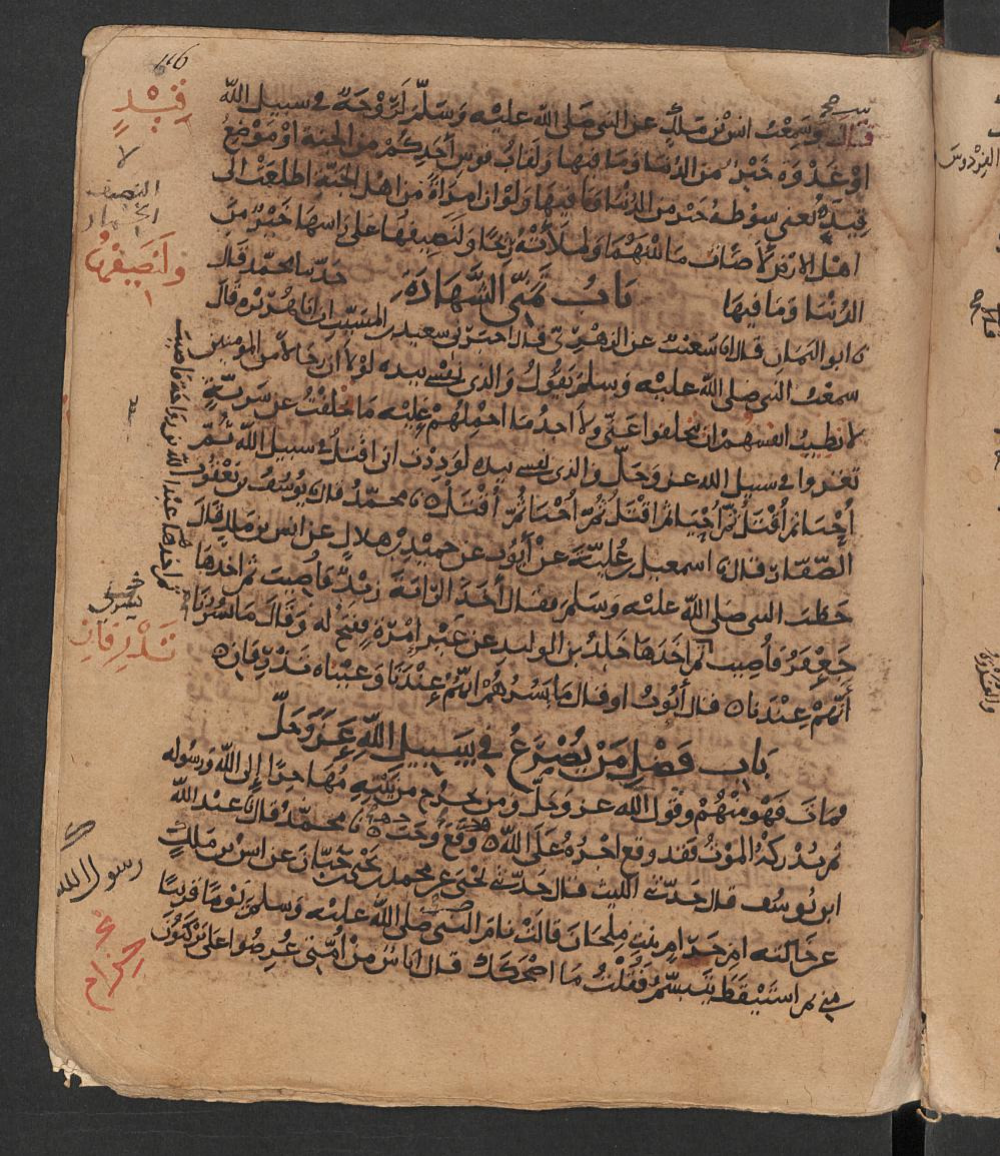 116
قال وسمعت انس بن ملك عن النبي صلى الله عليه وسلم لروحة في سبيل الله
او غدوة خير من الدنيا وما فيها ولقاب قوس أحدكم من الجنة او موضع
قيده يعني سوطه خير من الدنيا وما فيها ولو ان امرأة من اهل الجنة اطلعت الى
اهل الارض لأضات ما بينهما ولملأته ريحا ولنصيفها على راسها خير من
الدنيا وما فيها باب تمني الشهادة حدثنا محمد قال
ابو اليمان قال شعيب عن الزهري قال اخبرني سعيد بن المسيب ان ابا هريرة قال
سمعت النبي صلى الله عليه وسلم يقول والذي نفسي بيده لولا ان رجالا من المومنين
لا تطيب انفسهم ان يتخلفوا عني ولا اجد ما احملهم عليه ما تخلفت عن سرية
تغزوا في سبيل الله عز وجل والذي نفسي بيده لوددت اني اقتل في سبيل الله ثم
أحيا ثم أقتل ثم أحيا ثم اقتل ثم أحيا ثم أقتل محمد قال يوسف بن يعقوب
الصفار قال اسمعيل بن علية عن أيوب عن حميد بن هلال عن انس بن ملك قال
خطب النبي صلى الله عليه وسلم فقال أخذ الراية زيد فاصيب ثم اخذها
جعفر فأصيب ثم اخذها خلد بن الوليد عن غير إمرة ففتح له وقال ما يسرنا
أنهم عندنا قال أيوب او قال ما يسرهم انهم عندنا وعيناه تذرفان
باب فضل من يصرع في سبيل الله عز وجل
فمات فهو منهم وقول الله عز وجل ومن يخرج من بيته مهاجرا إلى الله ورسوله
ثم يدركه الموت فقد وقع اجره على الله وقع وجب محمد قال عبد الله
ابن يوسف قال حدثني الليث قال حدثني يحيى عن محمد بن يحيى بن حبان عن انس بن ملك
عن خالته ام حرام بنت ملحان قالت نام النبي صلى الله عليه وسلم يوما قريبا
مني ثم استيقظ يتبسم فقلت ما اضحكك قال اناس من أمتي عرضوا علي يركبون
قيد
النصيف
الخمار
ولنصيفها
ثم اخذها عبد الله بن رواحة فاصيب
يسرني
تذرفان
رسول الله
الفردوس